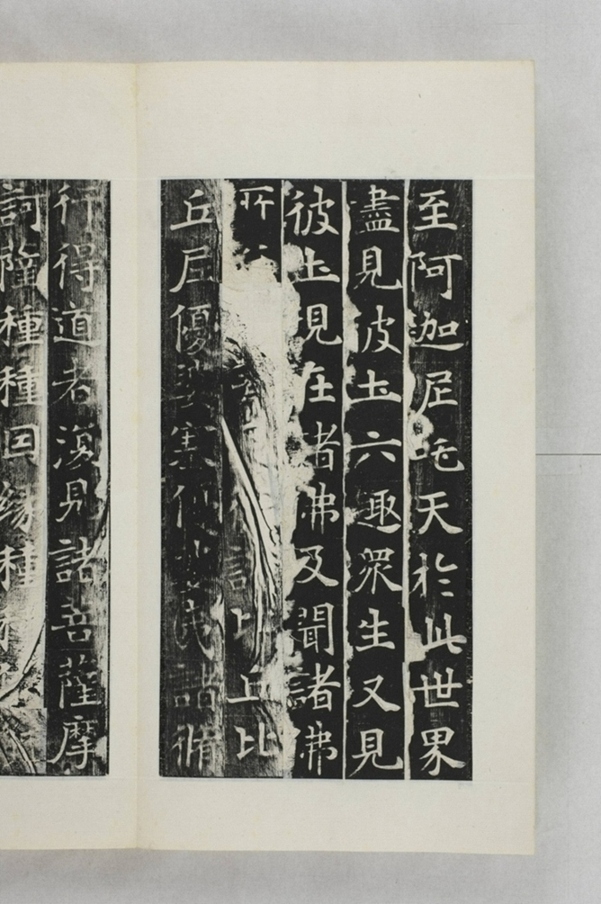 至阿迦尼吒天於此世界
盡見彼圡六趣衆生又見
彼圡現在諸佛及聞諸佛
所諸比丘比
丘尼優婆塞優婆夷諸脩
行得道者復見諸菩薩摩
訶薩種種囙緣種